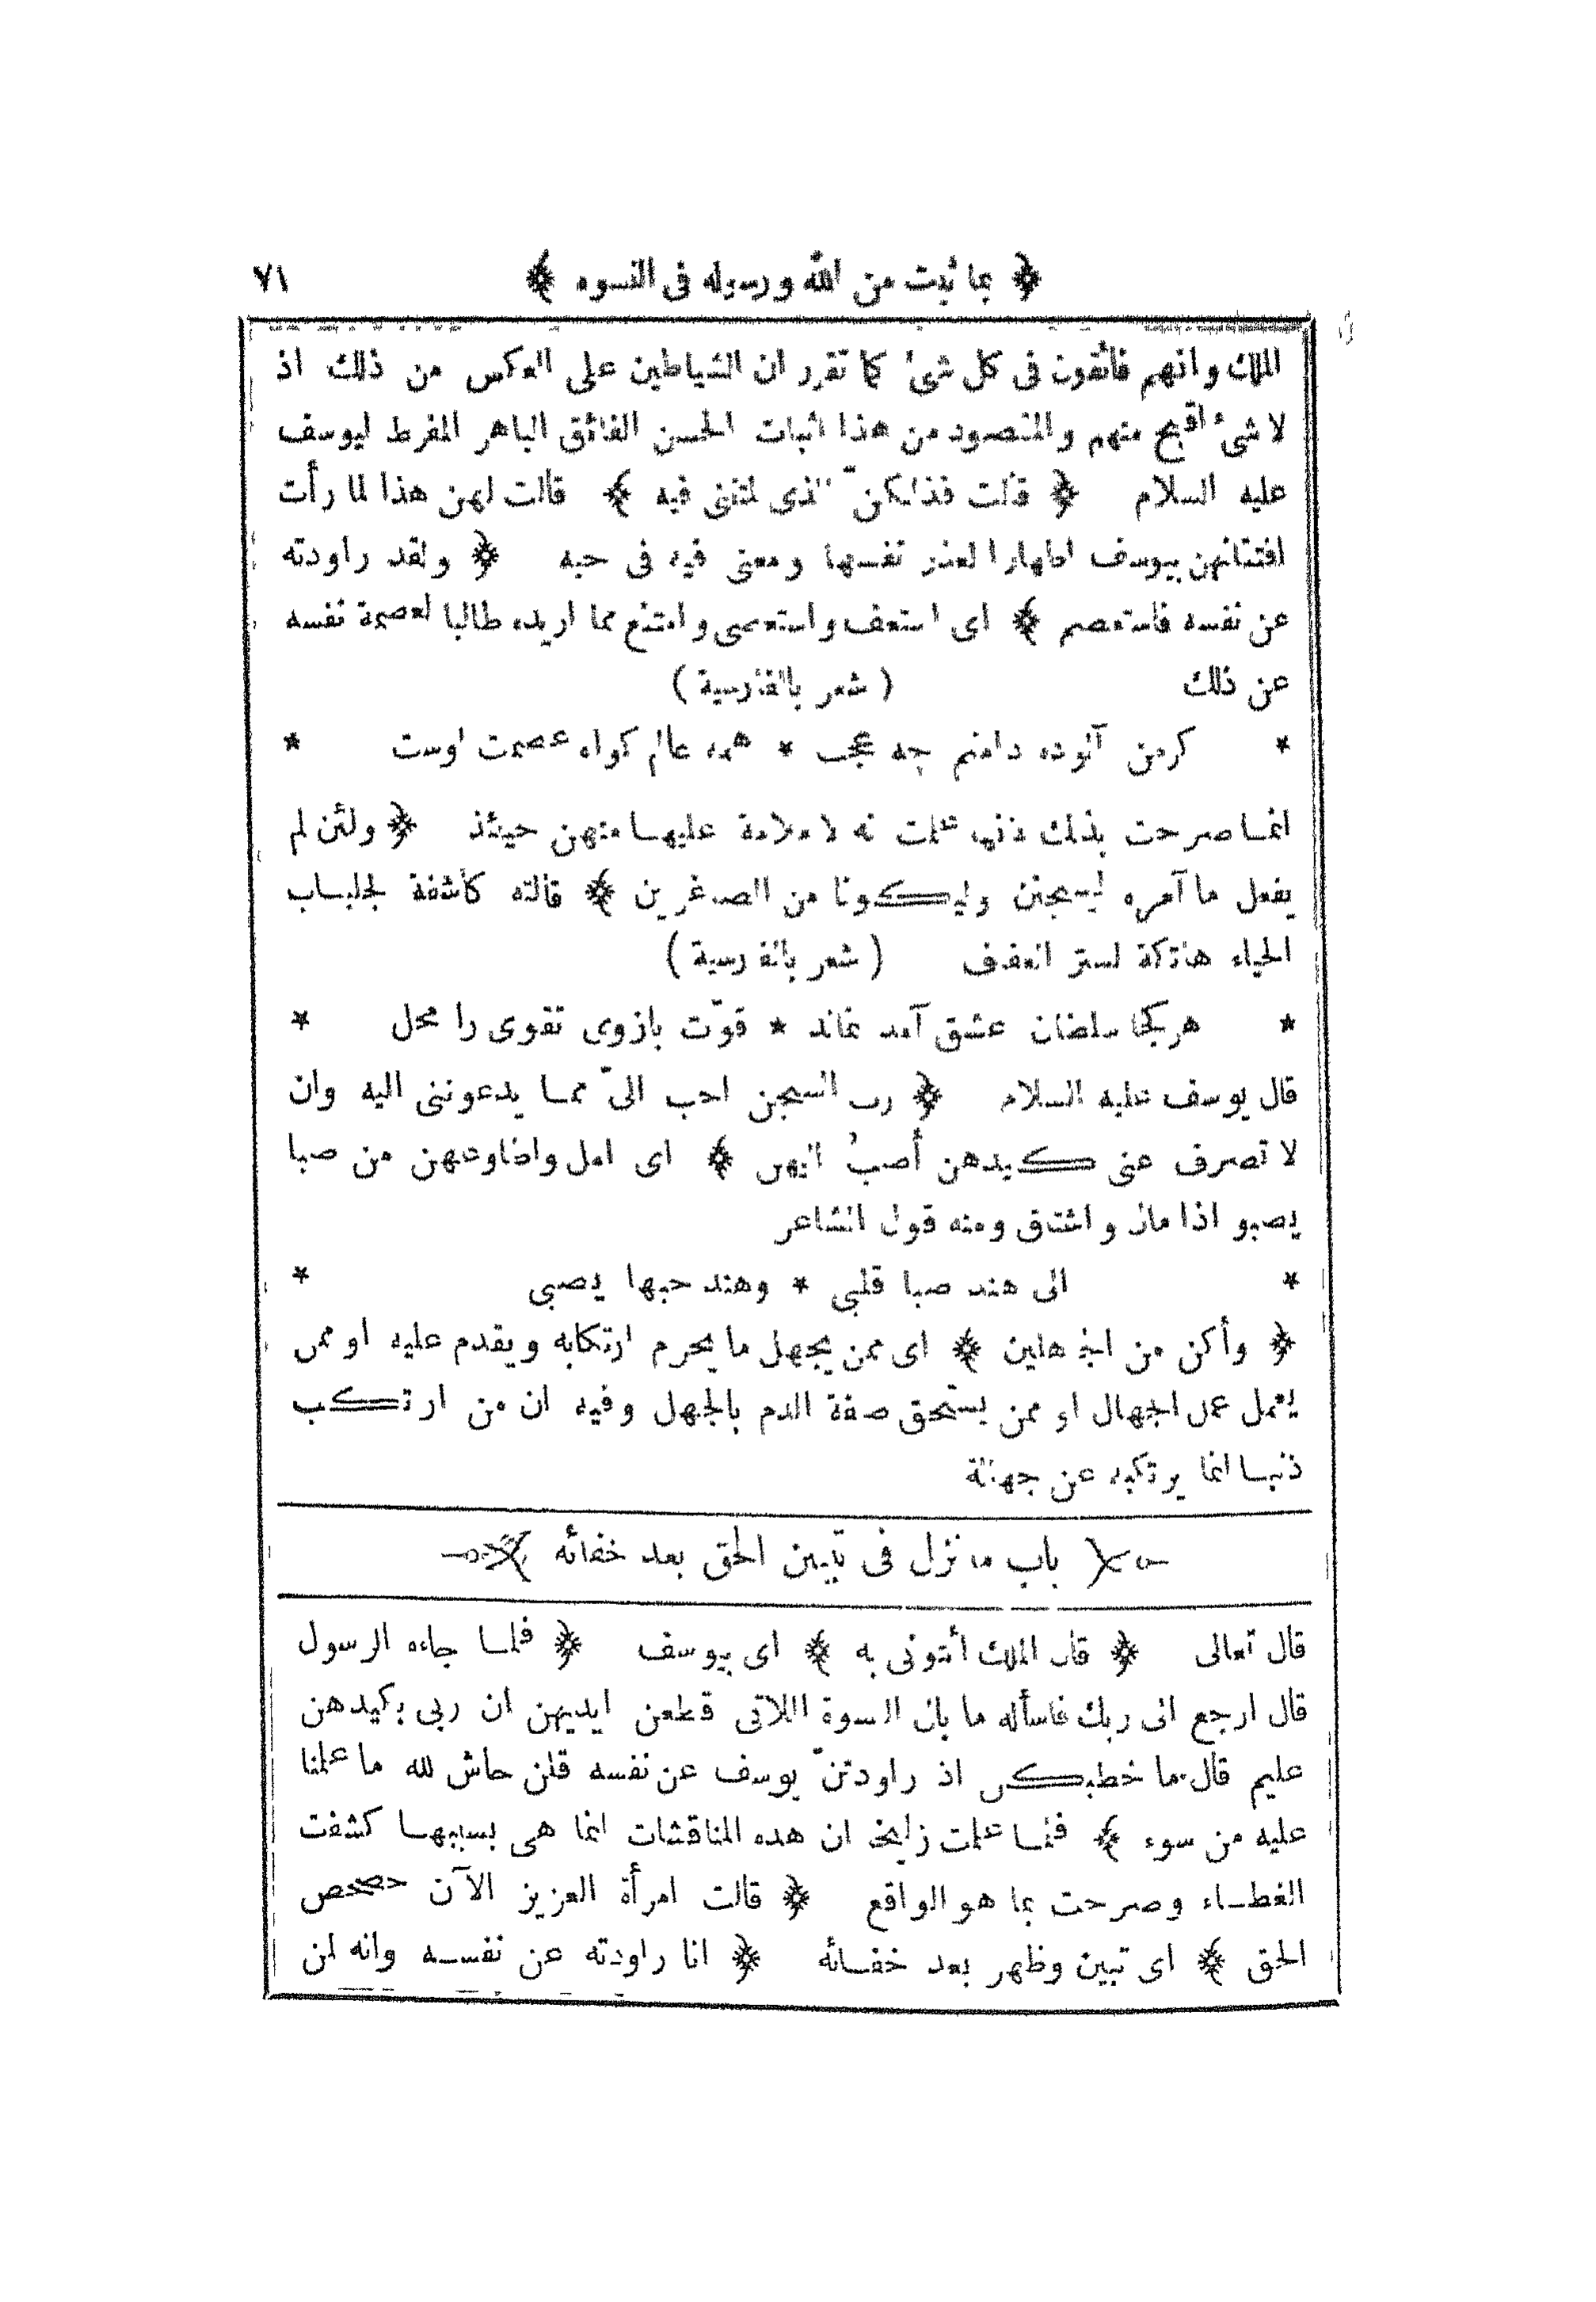 ﴿ بما ثبت من الله ورسوله فى النسوه ﴾ ٧١
الملك وانهم فائقون فى كل شئ كما تقرر ان الشياطين على العكس من ذلك اذ
لا شئ اقبح منهم والمقصود من هذا اثبات الحسن الفائق الباهر المفرط ليوسف
عليه السلام ﴿ قالت فذلكنّ الذى لمتننى فيه ﴾ قالت لهن هذا لما رأت
افتتانهن بيوسف اظهارا لعذر نفسها ومعنى فيه فى حبه ﴿ ولقد راودته
عن نفسه فاستعصم ﴾ اى استعف واستعصى وامتنع مما اريده طالبا لعصمة نفسه
عن ذلك ( شعر بالفارسية )
* كرمن آلوده دامنم چه عجب * همه عالم كواه عصمت اوست *
انما صرحت بذلك لانها علمت انه لا ملامة عليها منهن حينئذ ﴿ ولئن لم
يفعل ما آمره ليسجنن وليكونا من الصاغرين ﴾ قالته كاشفة لجلباب
الحياء هاتكة لستر العفاف ( شعر بالفارسية )
* هركجا سلطان عشق آمد نماند * قوّت بازوى تقوى را محل *
قال يوسف عليه السلام ﴿ رب السجن احب الىّ مما يدعوننى اليه وان
لا تصرف عنى كيدهن أصبُ اليهن ﴾ اى امل واطاوعهن من صبا
يصبو اذا مال واشتاق ومنه قول الشاعر
* الى هند صبا قلبى * وهند حبها يصبى *
﴿ وأكن من الجاهلين ﴾ اى ممن يجهل ما يحرم ارتكابه ويقدم عليه او ممن
يعمل عمل الجهال او ممن يستحق صفة الذم بالجهل وفيه ان من ارتكب
ذنبا انما يرتكبه عن جهالة
باب ما نزل فى تبيين الحق بعد خفائه
قال تعالى ﴿ قال الملك أئتونى به ﴾ اى بيوسف ﴿ فلما جاءه الرسول
قال ارجع الى ربك فاسأله ما بال النسوة اللاتى قطعن ايديهن ان ربى بكيدهن
عليم قال ما خطبكن اذ راودتنّ يوسف عن نفسه قلن حاش لله ما علمنا
عليه من سوء ﴾ فلما علمت زليخا ان هذه المناقشات انما هى بسببها كشفت
الغطاء وصرحت بما هو الواقع ﴿ قالت امرأة العزيز الآن حصحص
الحق ﴾ اى تبين وظهر بعد خفائه ﴿ انا راودته عن نفسه وانه لمن